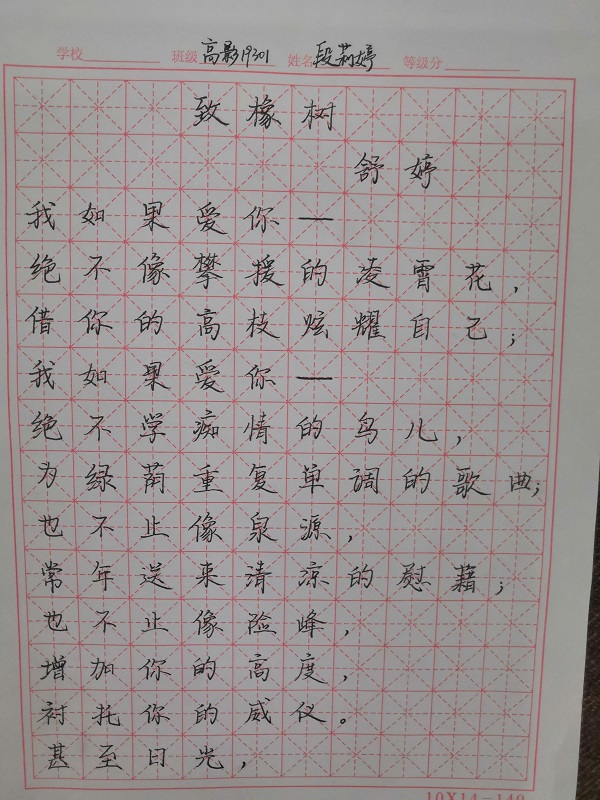 学校 班级 高影19301 姓名 段莉婷 等级分
致橡树
舒婷
我如果爱你—
绝不像攀援的凌霄花,
借你的高枝炫耀自己;
我如果爱你—
绝不学痴情的鸟儿,
为绿荫重复单调的歌曲;
也不止像泉源,
常年送来清凉的慰藉;
也不止像险峰,
增加你的高度,
衬托你的威仪。
甚至日光,
10X14=140